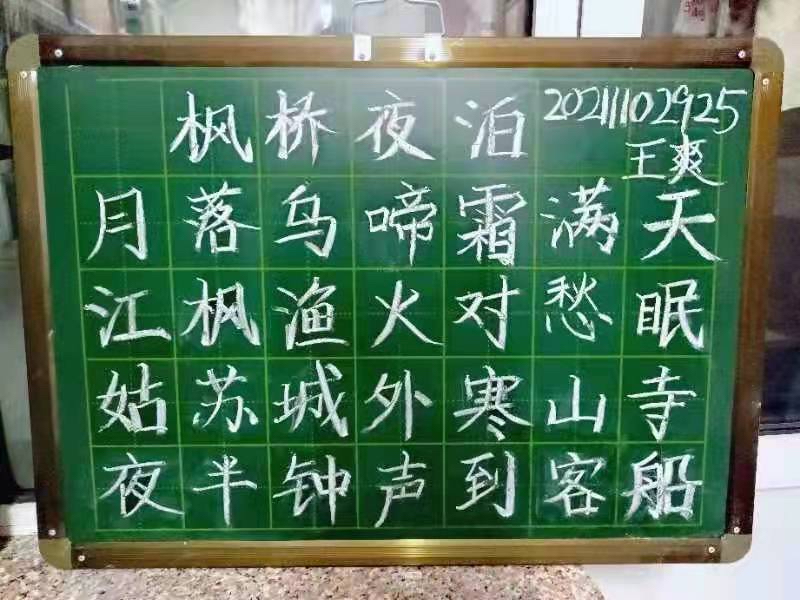 枫桥夜泊
20211102925
王爽
月落乌啼霜满天
江枫渔火对愁眠
姑苏城外寒山寺
夜半钟声到客船